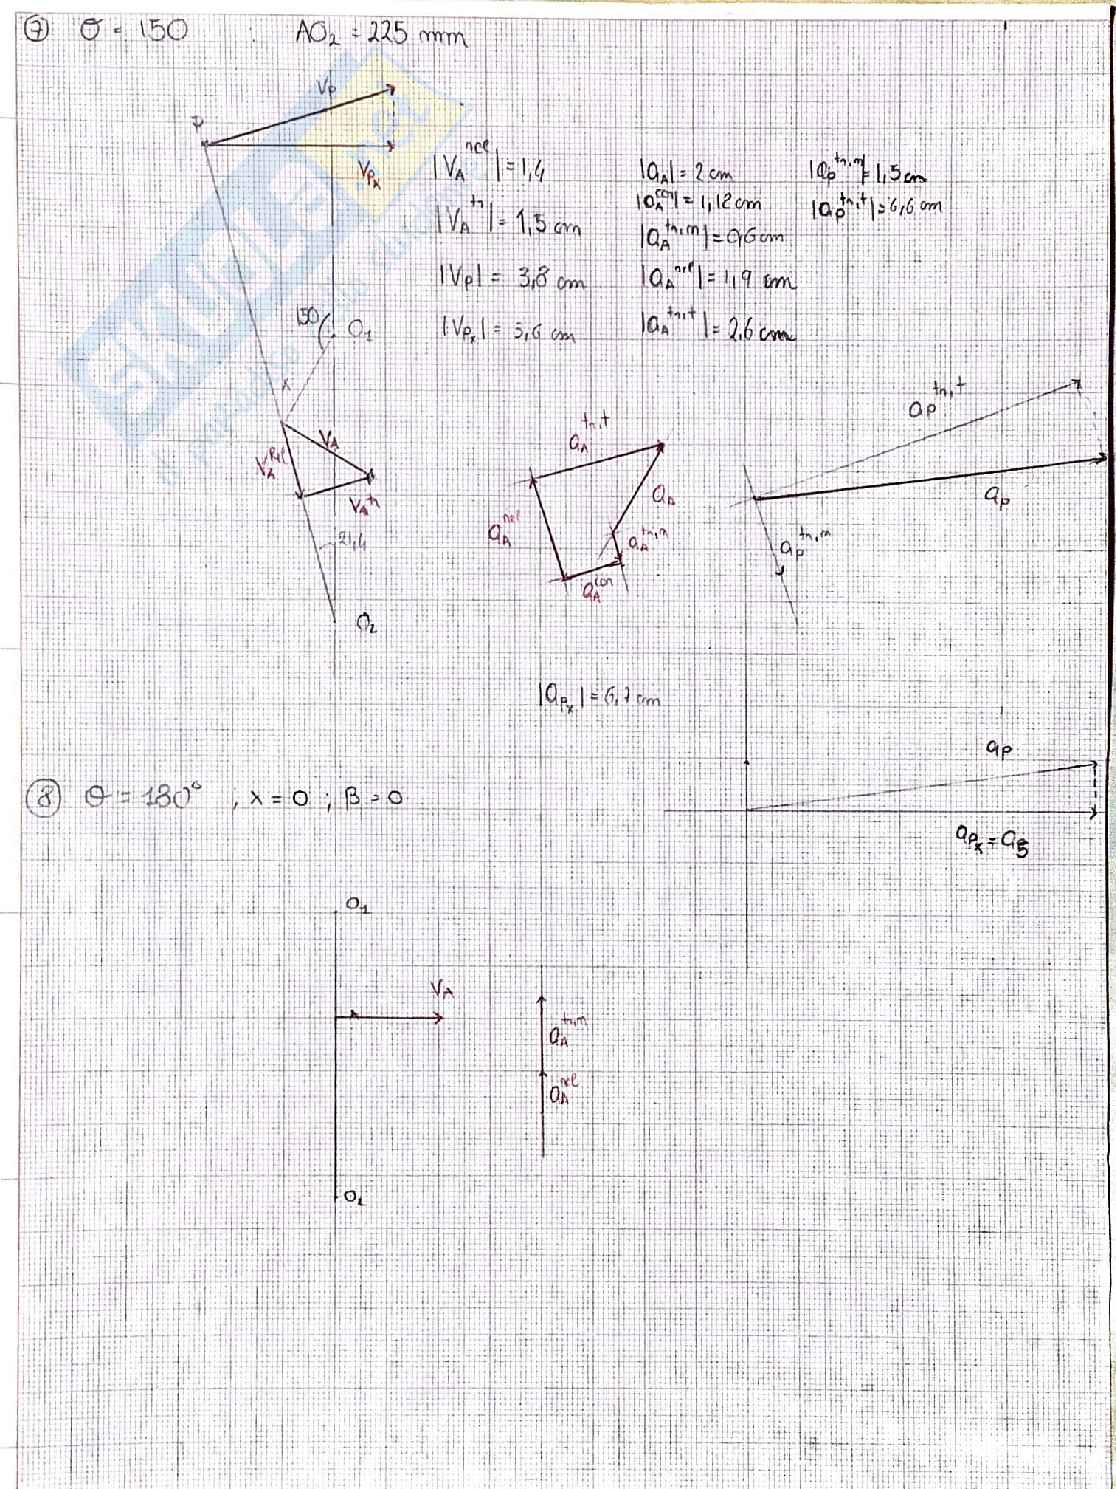 ⑦ θ = 150 AO₂ = 225 mm
P
Vp
Vpₓ
|V_A^rel| = 1,4
|V_A^tr| = 1,5 cm
|Vp| = 3,8 cm
|Vpₓ| = 3,6 cm
|a_A| = 2 cm
|a_A^cor| = 1,12 cm
|a_A^tr,n| = 0,6 cm
|a_A^rel| = 1,9 cm
|a_A^tr,t| = 2,6 cm
|a_P^tr,n| = 1,5 cm
|a_P^tr,t| = 6,6 cm
150
O₁
V_A
V_A^Rel
V_A^tr
21,4
O₂
a_A^tr,t
a_A^rel
a_A
a_A^tr,n
a_A^cor
a_P^tr,t
a_P
a_P^tr,n
|a_Pₓ| = 6,7 cm
a_P
a_Pₓ = a_B
⑧ θ = 180° , λ = 0 ; β = 0
O₁
V_A
a_A^tr,n
a_A^rel
O₂
SKUOLA.net